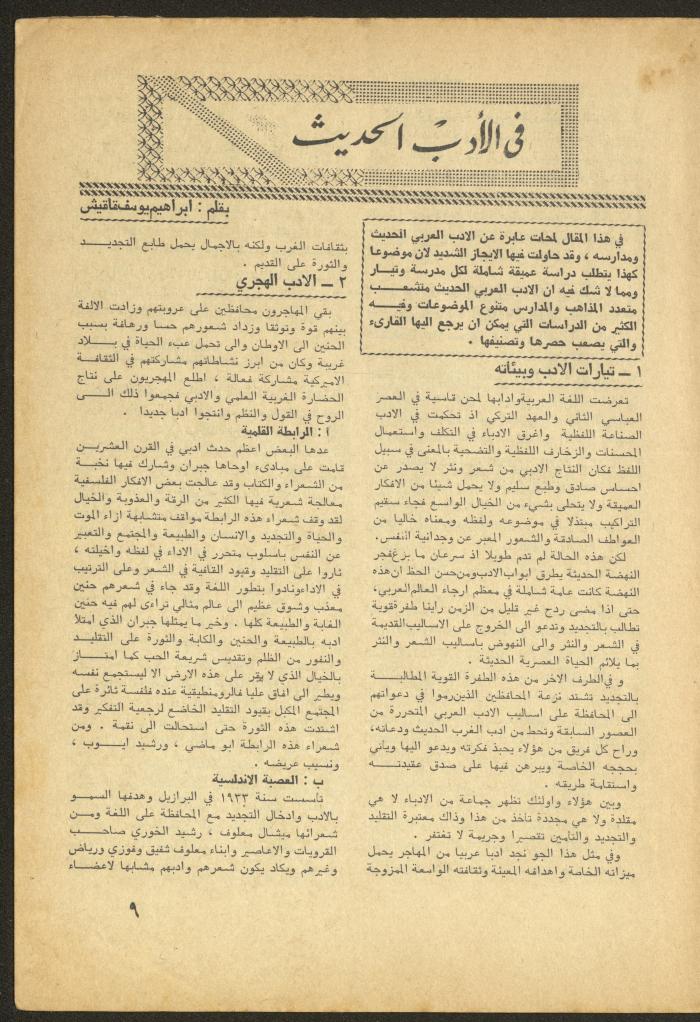 في الأدب الحديث
بقلم : ابراهيم يوسف قاقيش
في هذا المقال لمحات عابرة عن الادب العربي الحديث
ومدارسه ، وقد حاولت فيها الايجاز الشديد لان موضوعا
كهذا يتطلب دراسة عميقة شاملة لكل مدرسة وتيار
ومما لا شك فيه ان الادب العربي الحديث متشعب
متعدد المذاهب والمدارس متنوع الموضوعات وفيه
الكثير من الدراسات التي يمكن ان يرجع اليها القارىء
والتي يصعب حصرها وتصنيفها .
١ ــ تيارات الادب وبيئاته
تعرضت اللغة العربية وادابها لمحن قاسية في العصر
العباسي الثاني والعهد التركي اذ تحكمت في الادب
الصناعة اللفظية واغرق الادباء في التكلف واستعمال
المحسنات والزخارف اللفظية والتضحية بالمعنى في سبيل
اللفظ فكان النتاج الادبي من شعر ونثر لا يصدر عن
احساس صادق وطبع سليم ولا يحمل شيئا من الافكار
العميقة ولا يتحلى بشيء من الخيال الواسع فجاء سقيم
التراكيب مبتذلا في موضوعه ولفظه ومعناه خاليا من
العواطف الصادقة والشعور المعبر عن وجدانية النفس.
لكن هذه الحالة لم تدم طويلا اذ سرعان ما بزغ فجر
النهضة الحديثة يطرق ابواب الادب ومن حسن الحظ ان هذه
النهضة كانت عامة شاملة في معظم ارجاء العالم العربي،
حتى اذا مضى ردح غير قليل من الزمن راينا طفرة قوية
تطالب بالتجديد وتدعو الى الخروج على الاساليب القديمة
في الشعر والنثر والى النهوض باساليب الشعر والنثر
بما يلائم الحياة العصرية الحديثة .
و في الطرف الاخر من هذه الطفرة القوية المطالبة
بالتجديد تشتد نزعة المحافظين الذين رموا في دعواتهم
الى المحافظة على اساليب الادب العربي المتحررة من
العصور السابقة وتحط من ادب الغرب الحديث ودعاته،
وراح كل فريق من هؤلاء يحبذ فكرته ويدعو اليها وياتي
بحججه الخاصة ويبرهن فيها على صدق عقيدته
واستقامة طريقه .
وبين هؤلاء واولئك تظهر جماعة من الادباء لا هي
مقلدة ولا هي مجددة تاخذ من هذا وذاك معتبرة التقليد
والتجديد والتامين تقصيرا وجريمة لا تغتفر .
وفي مثل هذا الجو نجد ادبا عربيا من المهاجر يحمل
ميزاته الخاصة واهدافه المعينة وثقافته الواسعة الممزوجة
بثقافات الغرب ولكنه بالاجمال يحمل طابع التجديد
والثورة على القديم .
٢ ــ الادب الهجري
بقي المهاجرون محافظين على عروبتهم وزادت الالفة
بينهم قوة وتوثقا وزداد شعورهم حسا ورهافة بسبب
الحنين الى الاوطان والى تحمل عبء الحياة في بلاد
غريبة وكان من ابرز نشاطاتهم مشاركتهم في الثقافة
الاميركية مشاركة فعالة ، اطلع المهجريون على نتاج
الحضارة الغربية العلمي والادبي فجمعوا ذلك الى
الروح في القول والنظم وانتجوا ادبا جديدا .
ا : الرابطة القلمية
عدها البعض اعظم حدث ادبي في القرن العشرين
قامت على مبادىء اوحاها جبران وشارك فيها نخبة
من الشعراء والكتاب وقد عالجت بعض الافكار الفلسفية
معالجة شعرية فيها الكثير من الرقة والعذوبة والخيال
لقد وقف شعراء هذه الرابطة مواقف متشابهة ازاء الموت
والحياة والتجديد والانسان والطبيعة والمجتمع والتعبير
عن النفس باسلوب متحرر في الاداء في لفظه واخيلته ،
ثاروا على التقليد وقيود القافية في الشعر وعلى الترتيب
في الاداء ونادوا بتطور اللغة وقد جاء في شعرهم حنين
معذب وشوق عظيم الى عالم مثالي تراءى لهم فيه حنين
الغابة والطبيعة كلها . وخير ما يمثلها جبران الذي امتلأ
ادبه بالطبيعة والحنين والكابة والثورة على التقليد
والنفور من الظلم وتقديس شريعة الحب كما امتاز
بالخيال الذي لا يقر على هذه الارض الا ليستجمع نفسه
ويطير الى افاق عليا فالرومنطيقية عنده فلسفة ثائرة على
المجتمع المكبل بقيود التقليد الخاضع لرجعية التفكير وقد
اشتدت هذه الثورة حتى استحالت الى نقمة . ومن
شعراء هذه الرابطة ابو ماضي ، ورشيد ايوب ،
ونسيب عريضه .
ب : العصبة الاندلسية
تأسست سنة ١٩٣٣ في البرازيل وهدفها السمو
بالادب وادخال التجديد مع المحافظة على اللغة ومن
شعرائها ميشال معلوف ، رشيد الخوري صاحب
القرويات والاعاصير وابناء معلوف شفيق وفوزي ورياض
وغيرهم ويكاد يكون شعرهم وادبهم مشابها لاعضاء
٩